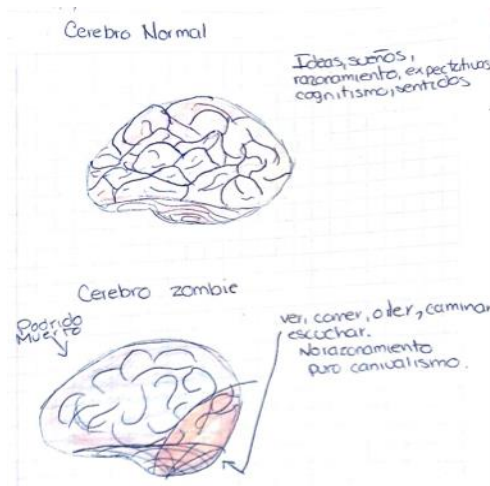 Cerebro Normal
Ideas, sueños,
razonamiento, expectativas
cognitismo, sentidos
Cerebro zombie
Podrido
Muerto
ver, comer, oler, caminar
escuchar.
No razonamiento
puro canivalismo.